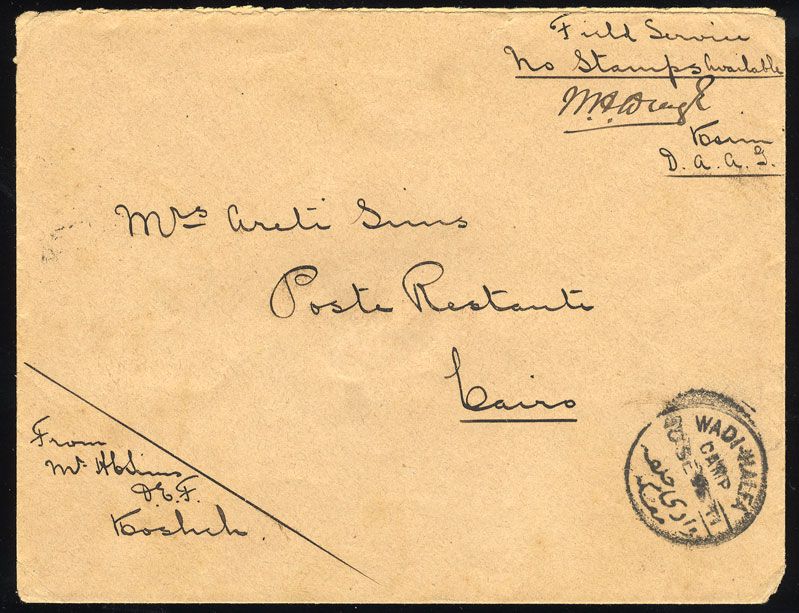 Field Service
No Stamps Available
D. A. A. G.
Mrs Areti Sims
Poste Restante
Cairo
From
Mr Sims
D.E.F.
Kosheh
WADI-HALFA
CAMP
SE 96
وادى حلفا
معسكر